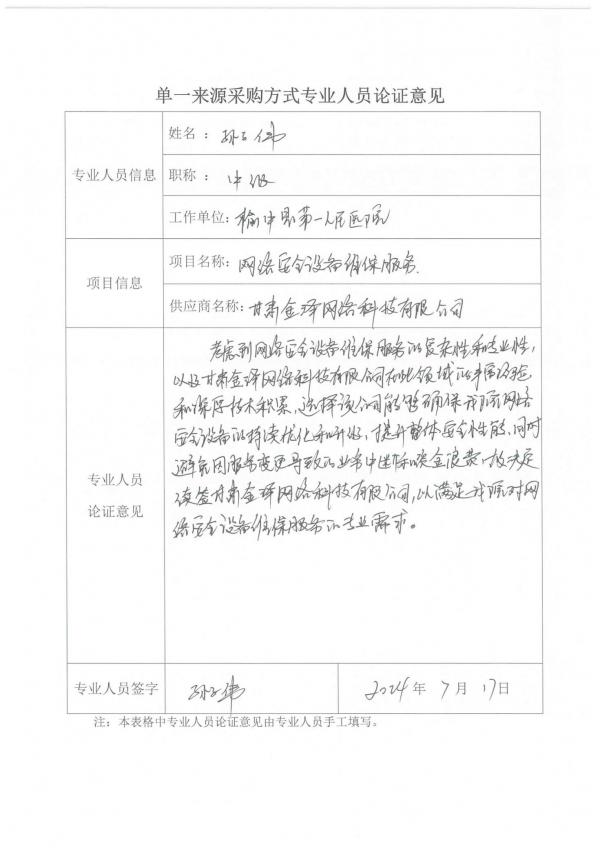 单一来源采购方式专业人员论证意见
专业人员信息
姓名：孙子伟
职称：中级
工作单位:榆中县第一人民医院
项目信息
项目名称:网络安全设备维保服务.
供应商名称:甘肃金译网络科技有限公司
专业人员
论证意见
考虑到网络安全设备维保服务的复杂性和专业性，
以及甘肃金译网络科技有限公司在此领域的丰富经验
和深厚技术积累，选择该公司能够确保我院网络
安全设备的持续优化和升级，提升整体安全性能，同时
避免因服务变更导致的业务中断和资金浪费，故决定
续签甘肃金译网络科技有限公司，以满足我院对网
络安全设备维保服务的专业需求。
专业人员签字
孙子伟
2024年7月17日
注：本表格中专业人员论证意见由专业人员手工填写。